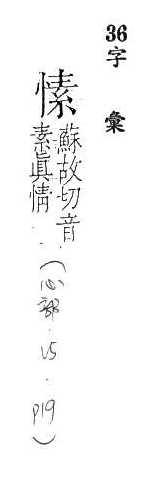 36字彙
愫
蘇故切音
素眞情
(心部.15.P19)